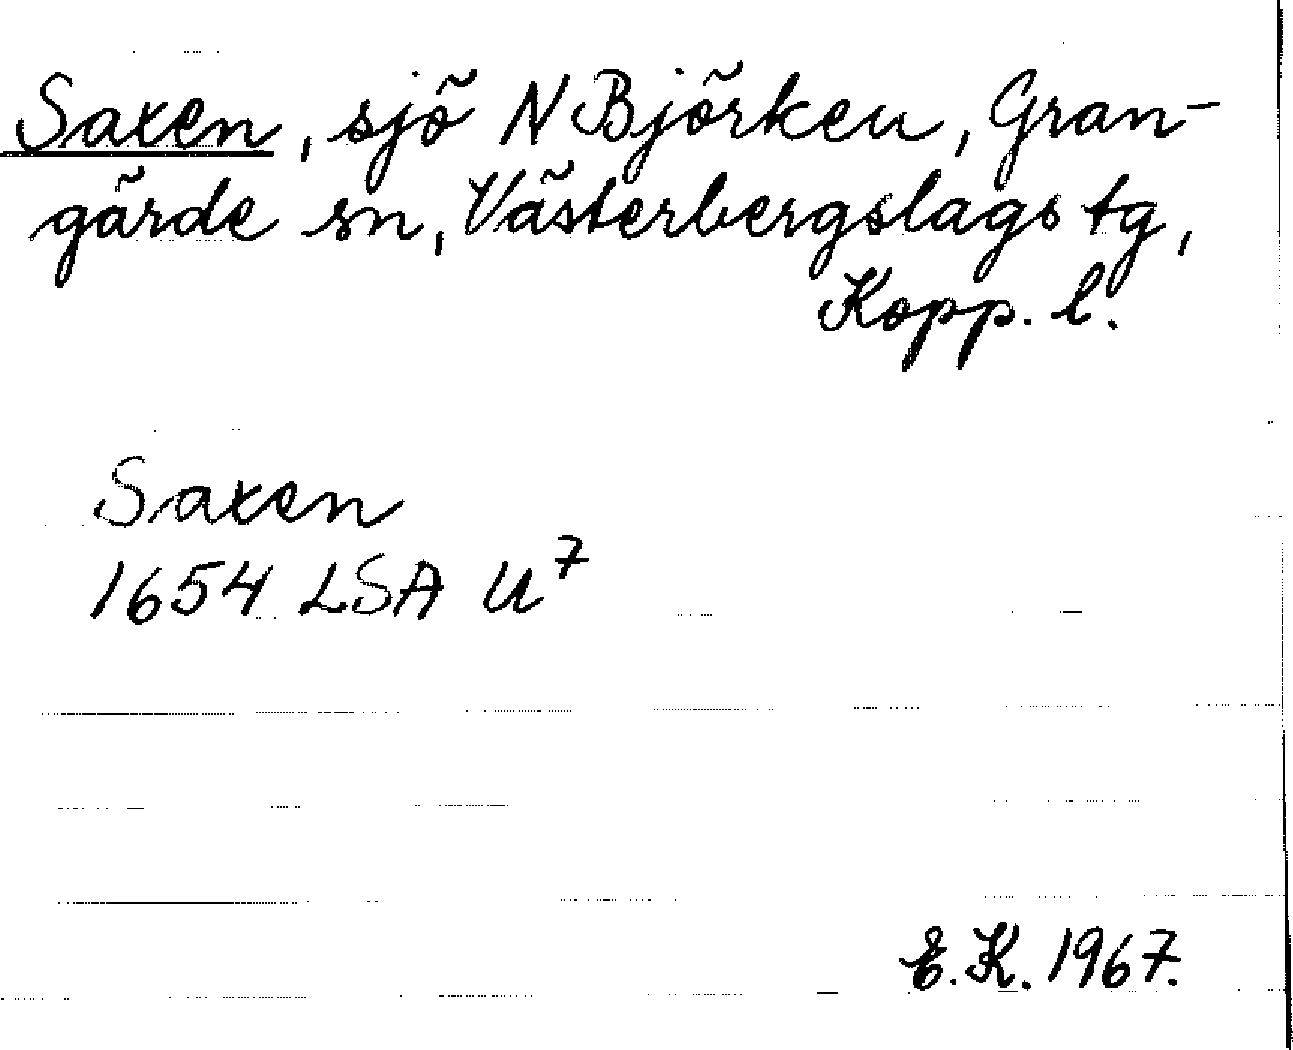 Saxen, sjö N Björken, Gran-
gärde sn, Västerbergslags tg,
Kopp. l.
Saxen
1654 LSA U⁷
E.K. 1967.